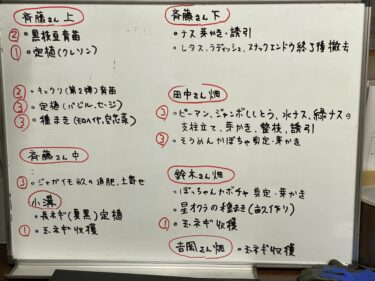 斉藤さん 上
② 。黒枝豆育苗
① 。定植(クレソン)
② 。キュウリ(第2弾)育苗
② 。定植(バジル、セージ)
③ 。種まき(モロヘイヤ、空芯菜)
斉藤さん 中
③ 。ジャガイモ畝の追肥、土寄せ
小溝
。長ネギ(夏黒)定植
① 。玉ネギ収穫
斉藤さん 下
。ナス芽かき・誘引
。レタス、ラディッシュ、スナックエンドウ終了種撤去
田中さん畑
③ 。ピーマン、ジャンボししとう、水ナス、緑ナスの
支柱立て、芽かき、整枝、誘引
③ 。そうめんかぼちゃ剪定・芽かき
鈴木さん畑
。ぼっちゃんカボチャ 剪定・芽かき
。星オクラの種まき(苗作り)
① 。玉ネギ収穫
吉岡さん畑 。玉ネギ収穫